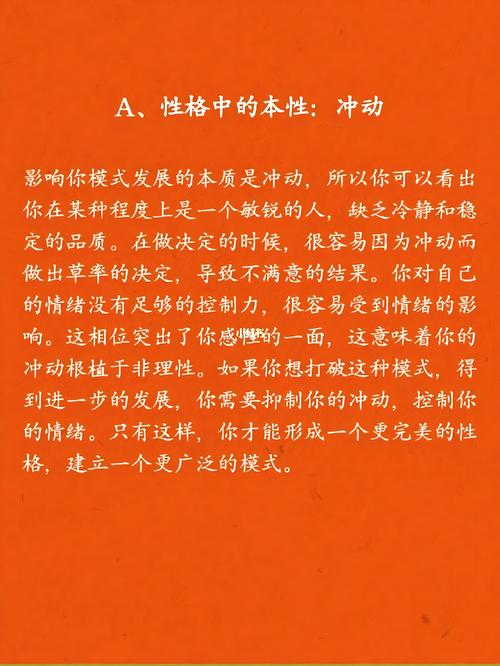 A、性格中的本性：冲动
影响你模式发展的本质是冲动，所以你可以看出
你在某种程度上是一个敏锐的人，缺乏冷静和稳
定的品质。在做决定的时候，很容易因为冲动而
做出草率的决定，导致不满意的结果。你对自己
的情绪没有足够的控制力，很容易受到情绪的影
响。这相位突出了你感性的一面，这意味着你的
冲动根植于非理性。如果你想打破这种模式，得
到进一步的发展，你需要抑制你的冲动，控制你
的情绪。只有这样，你才能形成一个更完美的性
格，建立一个更广泛的模式。